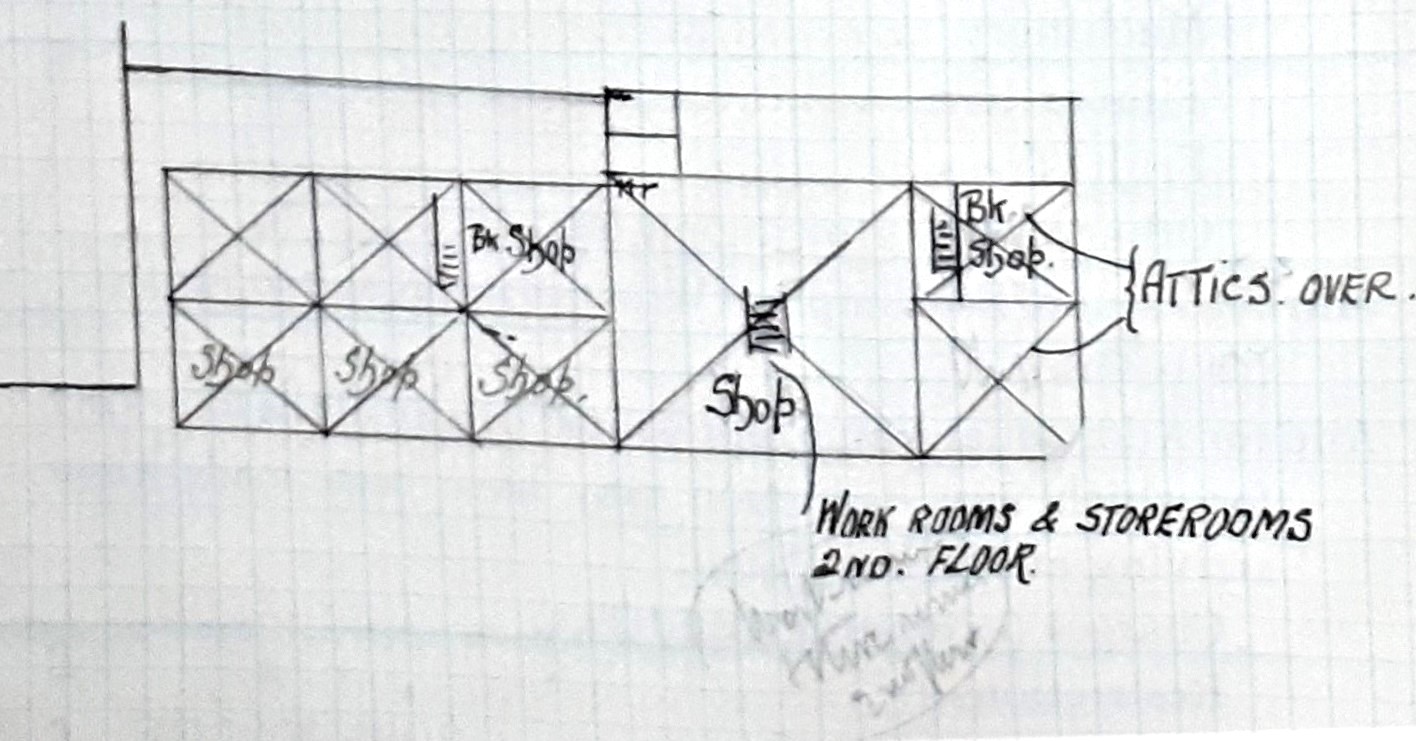 Bk Shop
Bk.
Shop.
ATTICS. OVER.
Shop
Shop
Shop.
Shop
WORK ROOMS & STOREROOMS
2ND. FLOOR.